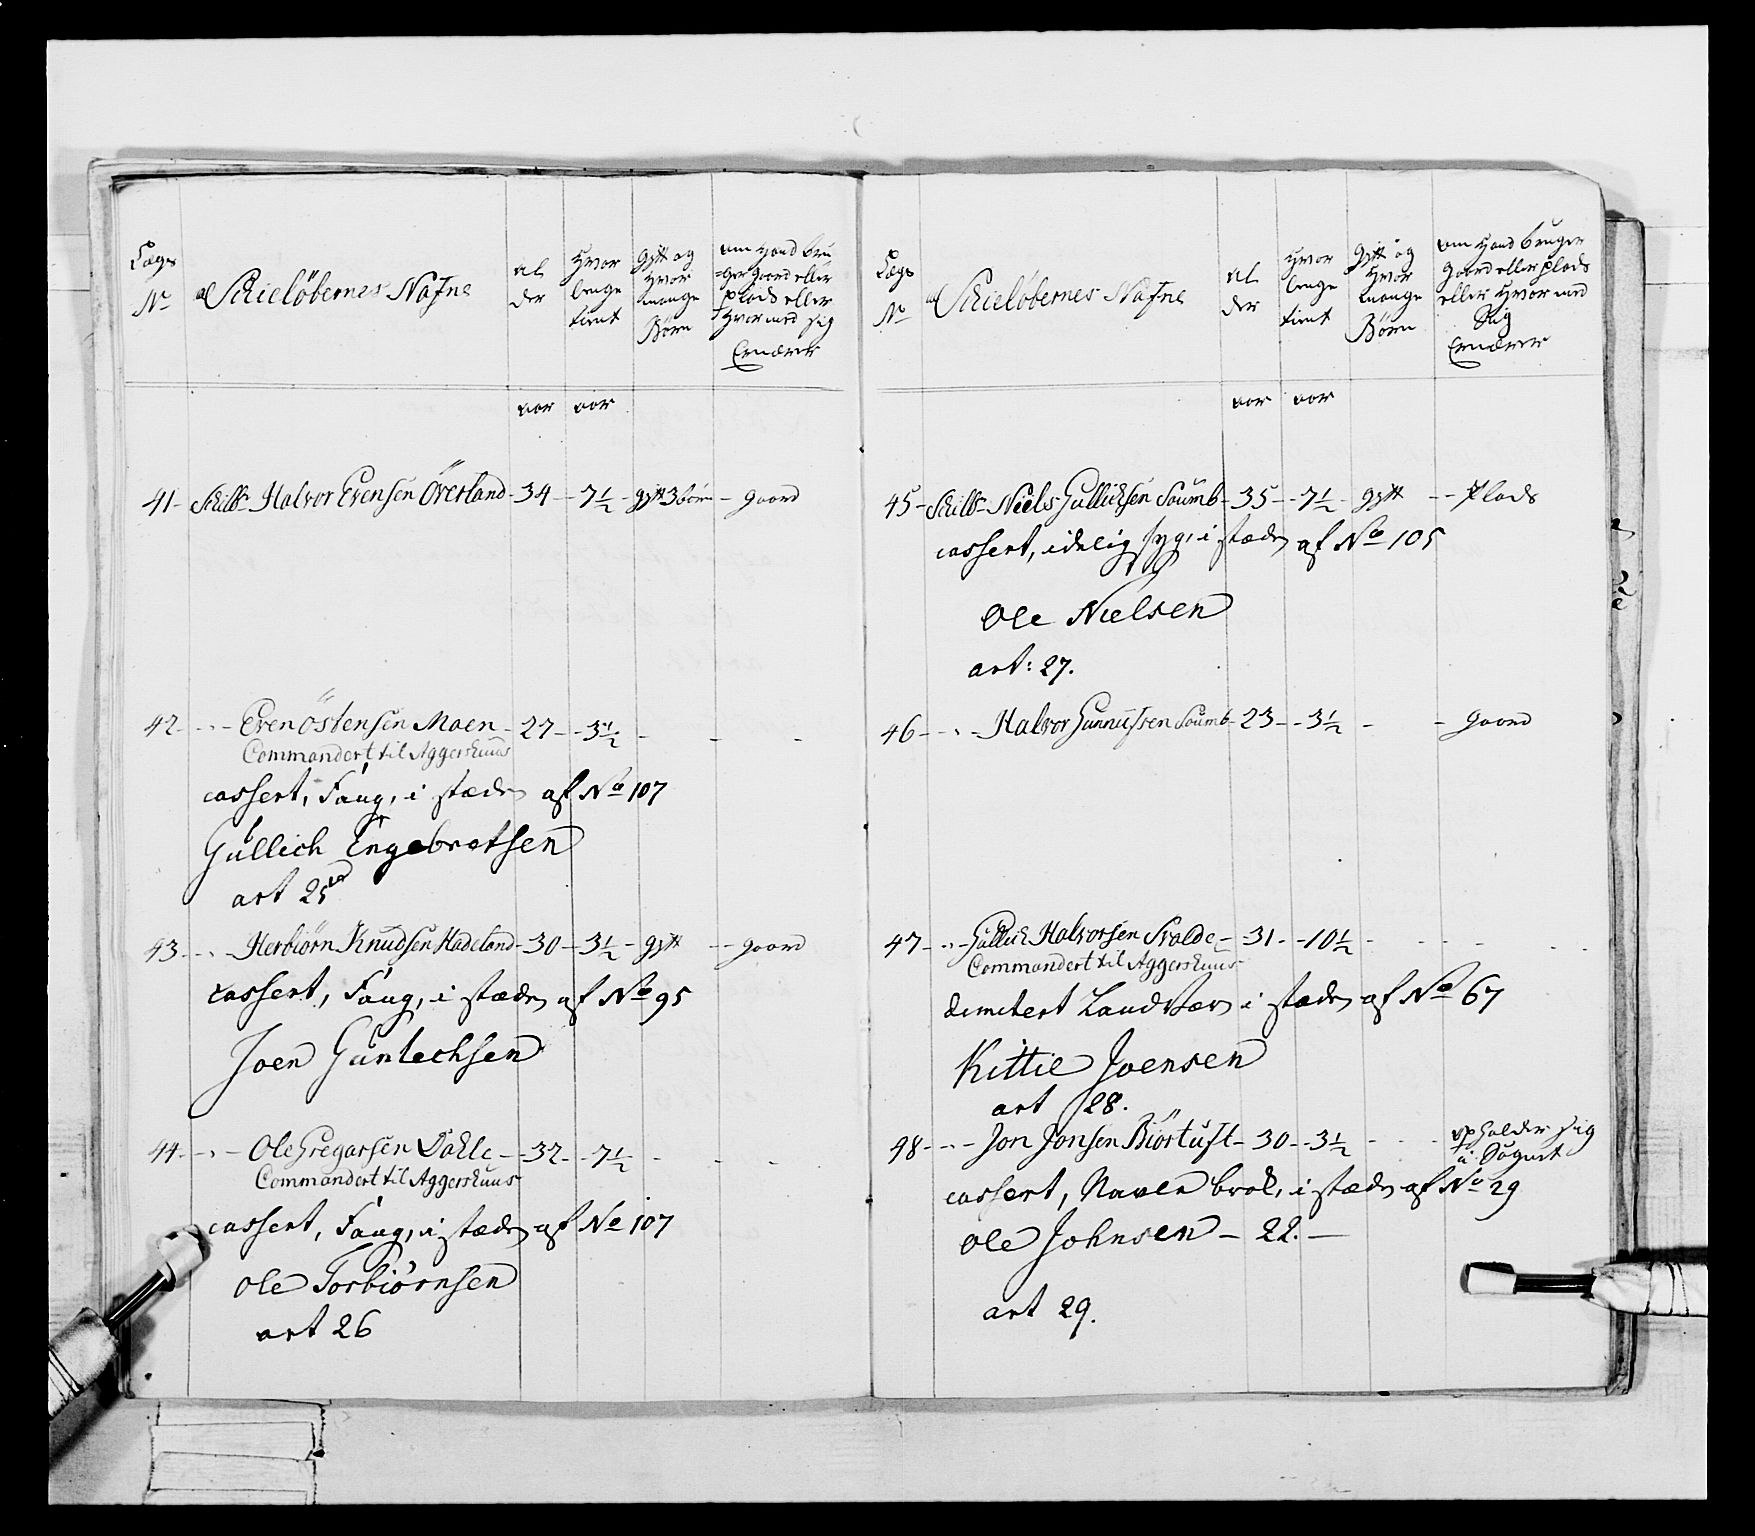 Lægs
No
Schieløbernes Nafne
al
der
Hvor
lenge
tient
gift og
Hvor
mange
Børn
om Hand bru
=ger gaard eller
plads eller
Hvor med sig
Ernærer
aar aar
41 Schilb. Halvor Evensen Överland 34 7 1/2 gift 3 børn gaard
42 Even Östensen Moen 27 3 1/2
Commandert til Aggershuus
cassert, Svag, i stæden af No 107
Gullich Engebretsen
art 25
43 Herbiörn Knudsen Hadeland 30 3 1/2 gift gaard
cassert, Svag, i stæden af No 95
Joen Guntechsen
44 Ole Gregarsen Dahle 32 7 1/2
Commandert til Aggershuus
cassert, Svag, i stæden af No 107
Ole Torbiørnsen
art 26
Lægs
No
Schieløbernes Nafne
al
der
Hvor
lenge
tient
gift og
Hvor
mange
Börn
om Hand bruger
gaard eller plads
eller Hvor med
Sig
Ernærer
aar aar
45 Schilb. Niels Gullichsen Soumb 35 7 1/2 gift Plads
cassert, idelig syg, i stæden af No 105
Ole Nielsen
art: 27.
46 Halvor Gunnufsen Soumb 23 3 1/2 gaard
47 Gullich Halvorsen Svalde 31 10 1/2
Commandert til Aggershuus
dimitert Landværn i stæden af No 67
Kittil Joensen
art 28.
48 Jon Jonsen Biörtuft 30 3 1/2 opholder sig
cassert, Naven brok, i stæden af No 29
Ole Johnsen 22.
art 29.